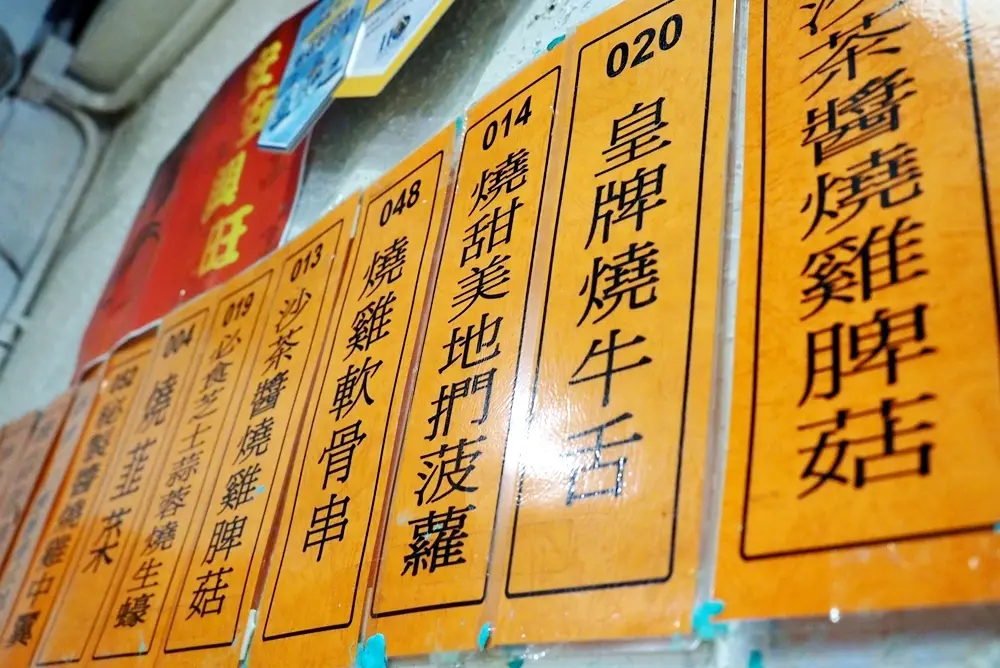 沙茶醬燒雞脾菇
020
皇牌燒牛舌
014
燒甜美地捫菠蘿
048
燒雞軟骨串
013
沙茶醬燒雞脾菇
019
必食芝士蒜蓉燒生蠔
004
燒韭菜
秘製醬燒雞中翼